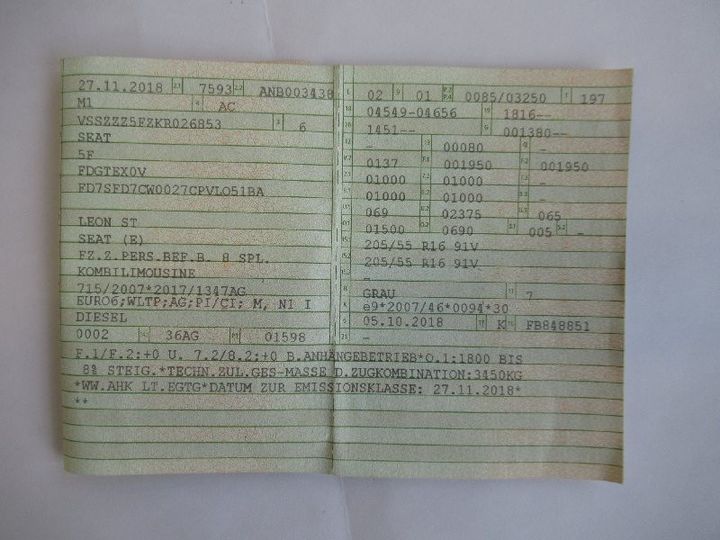 27.11.2018 2.1 7593 2.2 ANB003438
M1 4 AC
VSSZZZ5FZKR026853 3 6
SEAT
5F
FDGTEX0V
FD7SFD7CW0027CPVLO51BA
LEON ST
SEAT (E)
FZ.Z.PERS.BEF.B. 8 SPL.
KOMBILIMOUSINE
715/2007*2017/1347AG
EURO6;WLTP;AG;PI/CI; M, N1 I
DIESEL
0002 36AG 01598
L 02 9 01 P.2 P.4 0085/03250 T 197
18 04549-04656 19 1816--
20 1451-- G 001380--
12 - 13 00080 Q -
0137 001950 001950
01000 01000 -
01000 01000 -
069 02375 065
01500 0690 S.1 005 S.2 -
205/55 R16 91V
205/55 R16 91V
-
R GRAU 11 7
K e9*2007/46*0094*30
6 05.10.2018 17 K 16 FB848851
21 -
F.1/F.2:+0 U. 7.2/8.2:+0 B.ANHÄNGEBETRIEB*O.1:1800 BIS
8% STEIG.*TECHN.ZUL.GES-MASSE D.ZUGKOMBINATION:3450KG
*WW.AHK LT.EGTG*DATUM ZUR EMISSIONSKLASSE: 27.11.2018*
**